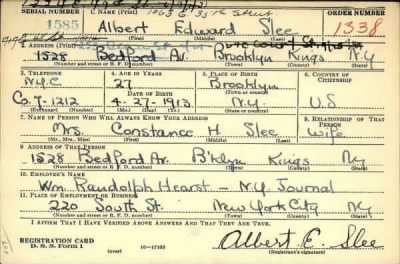 SERIAL NUMBER 1. NAME (Print) ORDER NUMBER
1585 Albert Edward Slee 1338
(First) (Middle) (Last)
2. ADDRESS (Print)
1528 Bedford Av. Brooklyn Kings N.Y.
(Number and street or R. F. D. number) (Town) (County) (State)
3. TELEPHONE 4. AGE IN YEARS 5. PLACE OF BIRTH 6. COUNTRY OF CITIZENSHIP
NYC 27 Brooklyn
DATE OF BIRTH (Town or county)
Co. 7-1212 4-27-1913 N.Y. U.S
(Exchange) (Number) (Mo.) (Day) (Yr.) (State or country)
7. NAME OF PERSON WHO WILL ALWAYS KNOW YOUR ADDRESS 8. RELATIONSHIP OF THAT PERSON
Mrs. Constance H. Slee Wife
(Mr., Mrs., Miss) (First) (Middle) (Last)
9. ADDRESS OF THAT PERSON
1528 Bedford Av. B'klyn Kings Ny
(Number and street or R. F. D. number) (Town) (County) (State)
10. EMPLOYER'S NAME
Wm. Randolph Hearst - N.Y. Journal
11. PLACE OF EMPLOYMENT OR BUSINESS
220 South St. New York City Ny
(Number and street or R. F. D. number) (Town) (County) (State)
I AFFIRM THAT I HAVE VERIFIED ABOVE ANSWERS AND THAT THEY ARE TRUE.
REGISTRATION CARD
D. S. S. Form 1 (over) 16-17105 Albert E. Slee
(Registrant's signature)